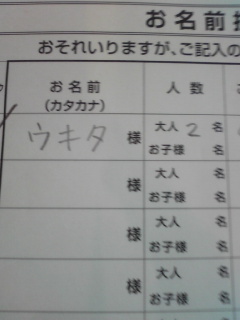 お名前
おそれいりますが、ご記入の
お名前 人数
(カタカナ)
ウキタ 様 大人 2 名
お子様 名
様 大人 名
お子様 名
様 大人 名
お子様 名
様 大人 名
お子様 名